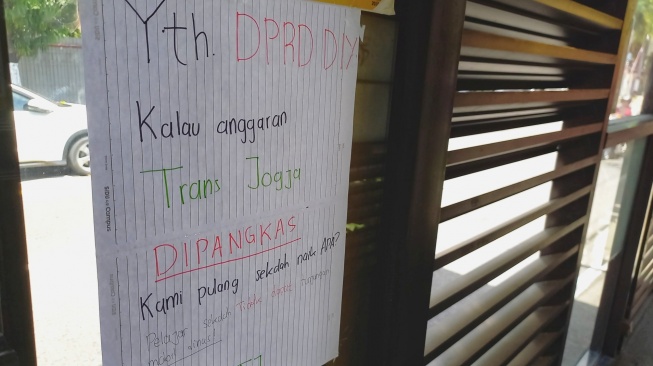 Yth. DPRD DIY
Kalau anggaran
Trans Jogja
DIPANGKAS
Kami pulang sekolah naik APA?
Pelajar sekolah
mobil dinas